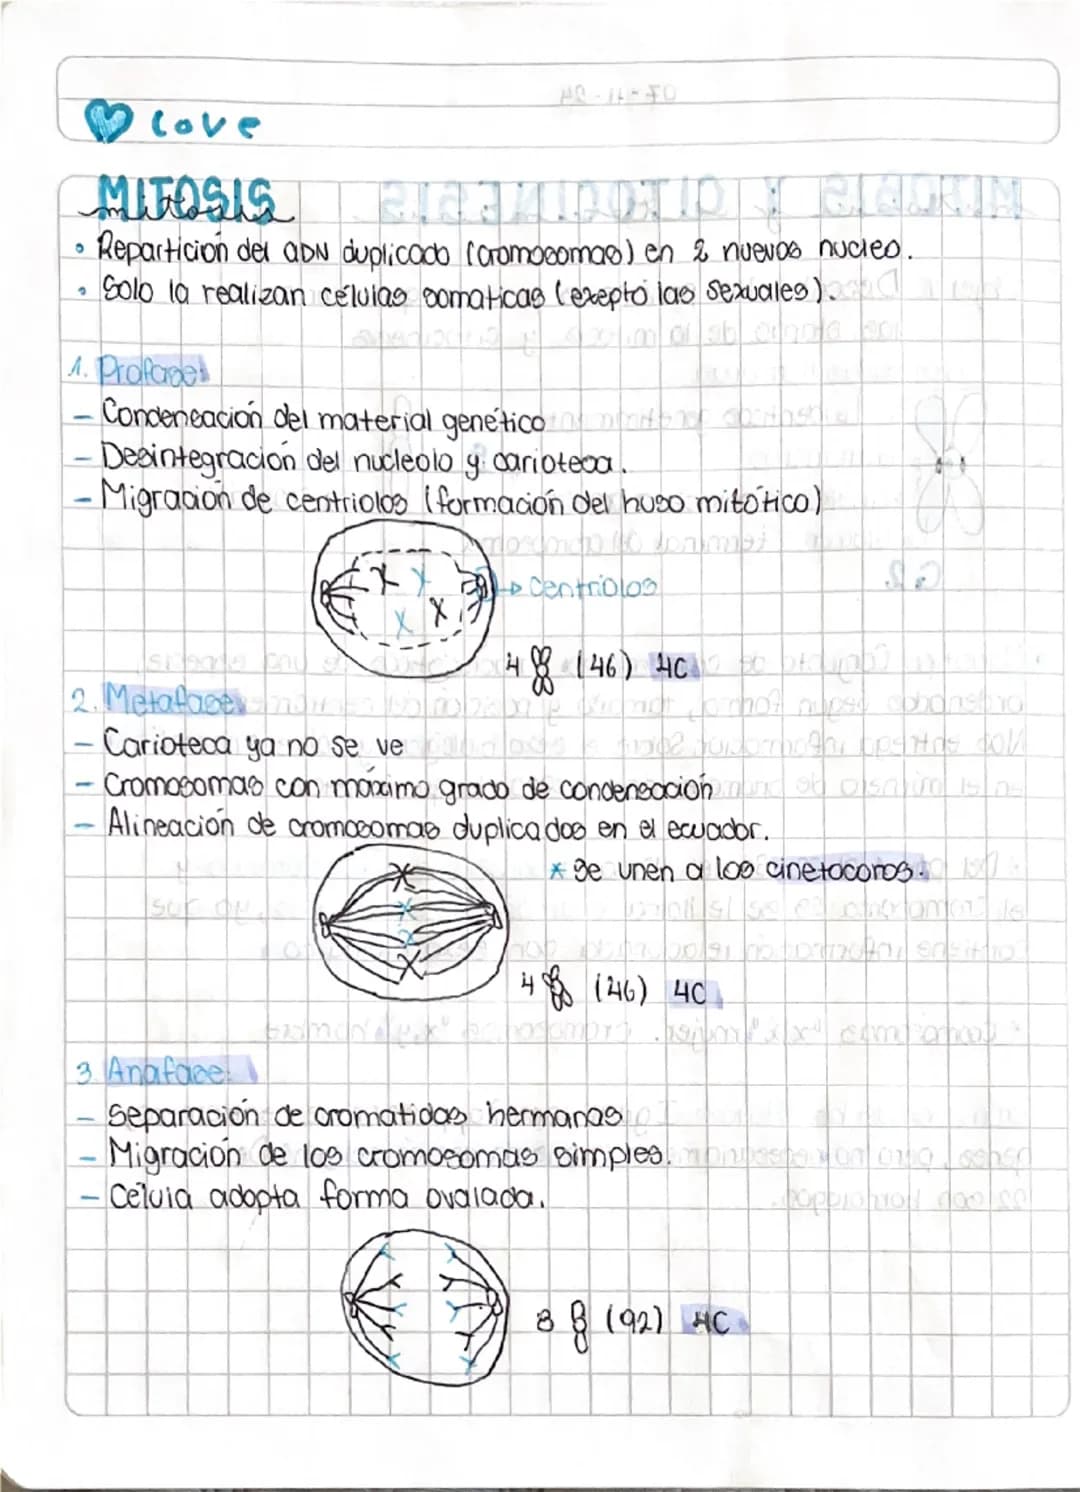 love
MITOSIS
mitosis
• Repartición del ADN duplicado (cromosomas) en 2 nuevos nucleo.
• Solo la realizan células somaticas (exepto las sexuales).
1. Profase:
- Condensación del material genético
- Desintegración del nucleolo y carioteca.
- Migración de centriolos (formación del huso mitótico)
→ centriolos
4 (46) 4C
2. Metafase:
- Carioteca ya no se ve
- Cromosomas con máximo grado de condensación
- Alineación de cromosomas duplicados en el ecuador.
* Se unen a los cinetocoros.
4 (46) 4C
3. Anafase:
- Separación de cromatidas hermanas
- Migración de los cromosomas simples.
- Célula adopta forma ovalada.
8 (92) 4C